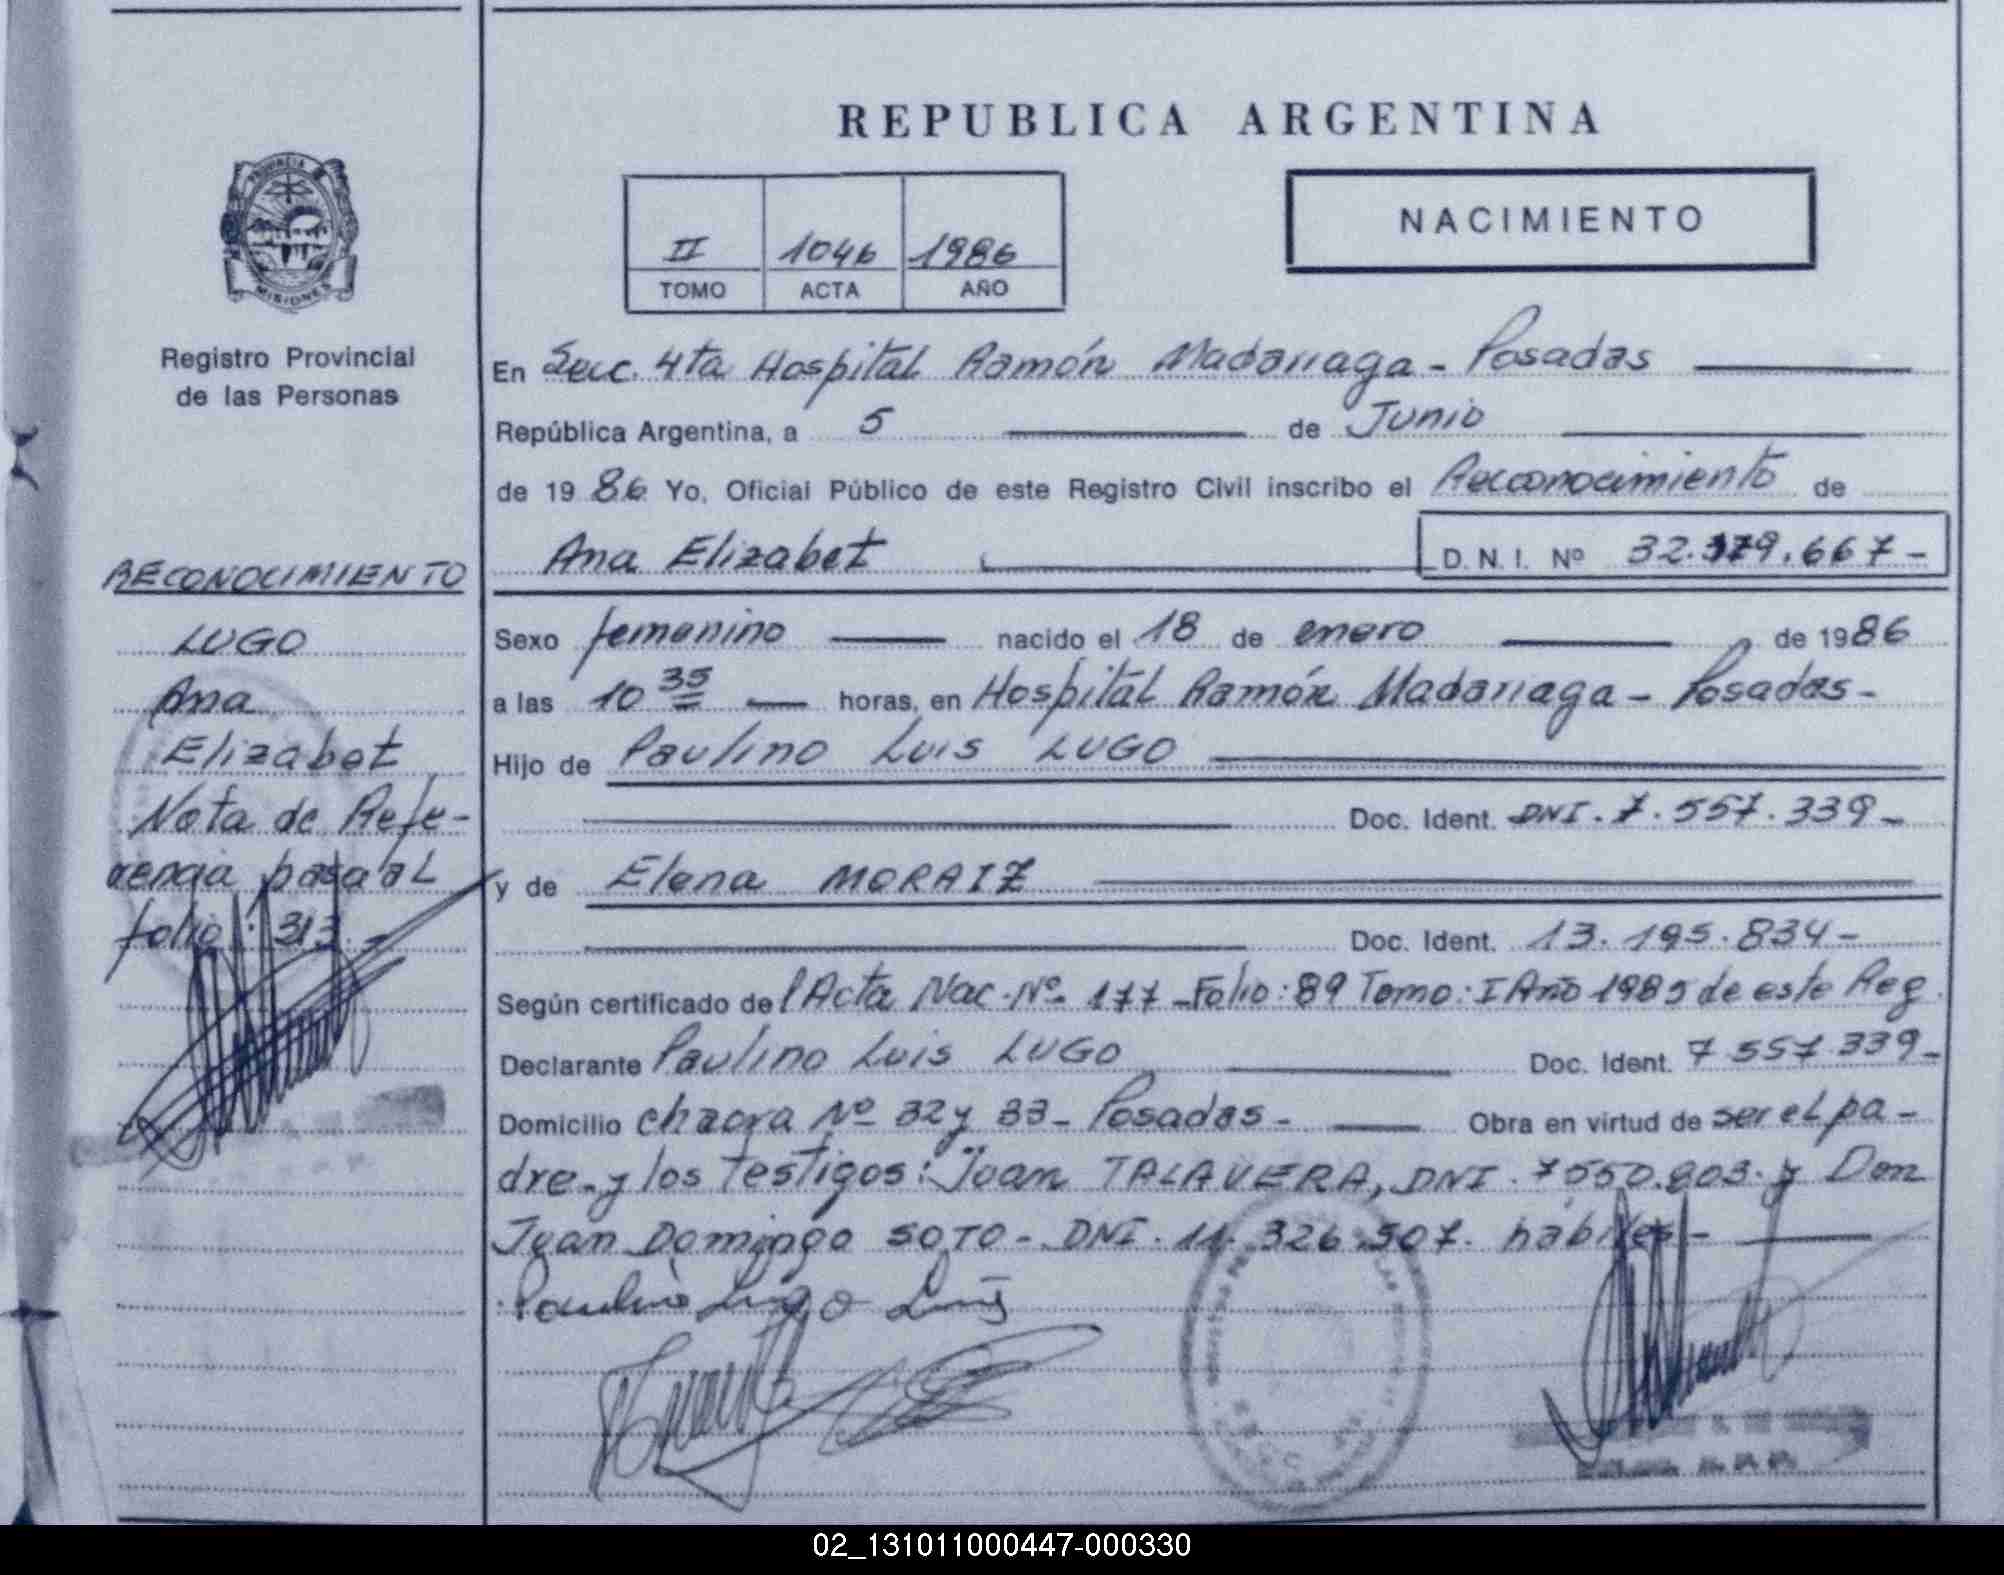 REPUBLICA ARGENTINA
PROVINCIA DE
MISIONES
Registro Provincial
de las Personas
II 1046 1986
TOMO ACTA AÑO
NACIMIENTO
En Secc. 4ta Hospital Ramón Madariaga - Posadas
República Argentina, a 5 de Junio
de 1986 Yo, Oficial Público de este Registro Civil inscribo el Reconocimiento de
Ana Elizabet D. N. I. Nº 32.379.667-
Sexo femenino nacido el 18 de enero de 1986
a las 10 35 horas, en Hospital Ramón Madariaga - Posadas-
Hijo de Paulino Luis LUGO
Doc. Ident. DNI. 7.557.339-
y de Elena MORAIZ
Doc. Ident. 13.195.834-
Según certificado de l'Acta Nac. Nº 177 - Folio: 89 Tomo: I Año 1985 de este Reg.
Declarante Paulino Luis LUGO Doc. Ident. 7.557.339-
Domicilio chacra Nº 32 y 33 - Posadas - Obra en virtud de ser el pa-
dre - y los Testigos: Juan TALAVERA, DNI. 7550.803. y Don
Juan Domingo SOTO - DNI. 11.326.507. hábiles -
Paulino Lugo Luis
RECONOCIMIENTO
LUGO
Ana
Elizabet
Nota de Refe-
rencia pasa al
folio: 313.-
02_131011000447-000330